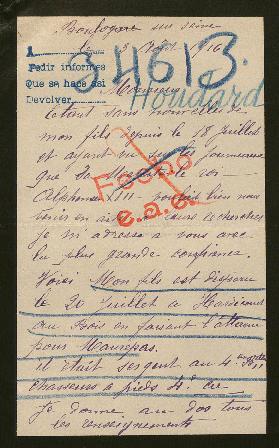 Boulogne sur Seine
le 3 Août 1916
34613
A
Pedir informes
Que se hace así
Devolver
Houdard
Monsieur
étant sans nouvelles de
mon fils depuis le 18 Juillet
et ayant vu sur les journeaux
que sa Majesté le roi
Fecho
Alphonse XIII voulait bien nous
e.a.c.
venir en aide recherches
je m'adresse a vous avec
la plus grande confiance.
Voici Mon fils est disparu
le 20 Juillet a
au Bois en faisant l'attaque
pour Maurepas.
il était sergent au 4e
chasseurs a pieds 4e cie
Je donne au dos tous
les renseignements